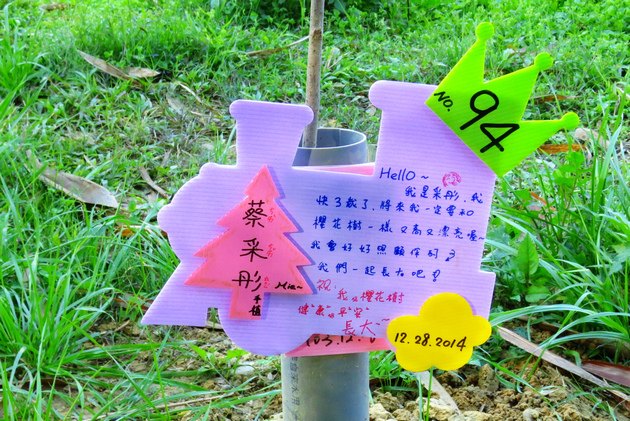 No. 94
Hello~
我是采彤,我
快3歲了,將來我一定要和
櫻花樹一樣又高又漂亮喔~
我會好好照顧你的
我們一起長大吧?
祝:我的櫻花樹
健康平安
長大~
蔡采彤
手植
12.28.2014